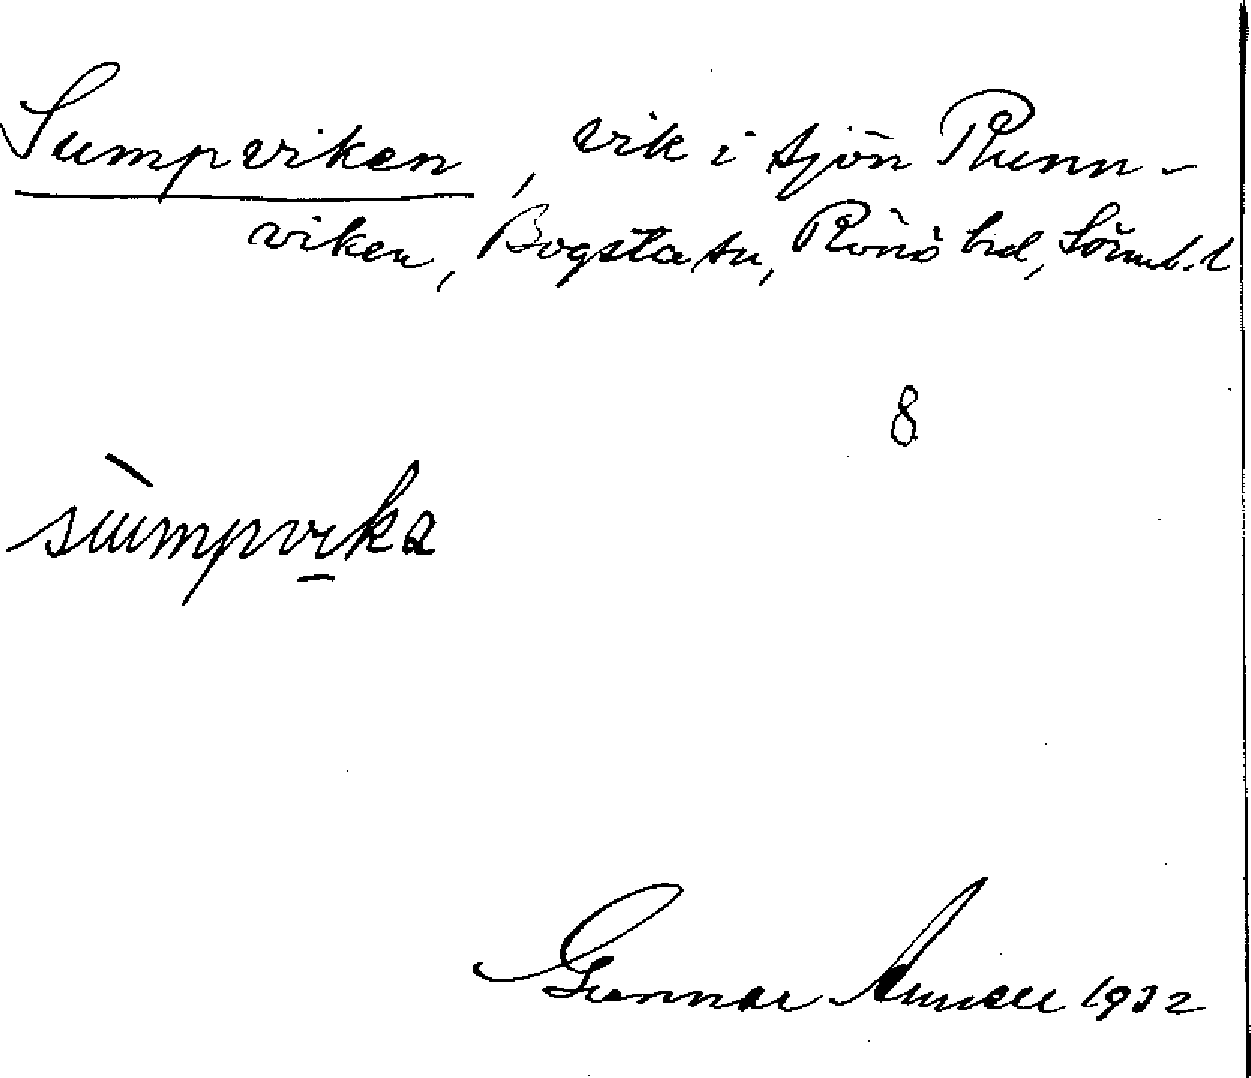 Sumpviken, vik i sjön Runn-
viken, Bogsta sn, Rönö hd, Sörml. l
8
sùmpvika
Gunnar 1932